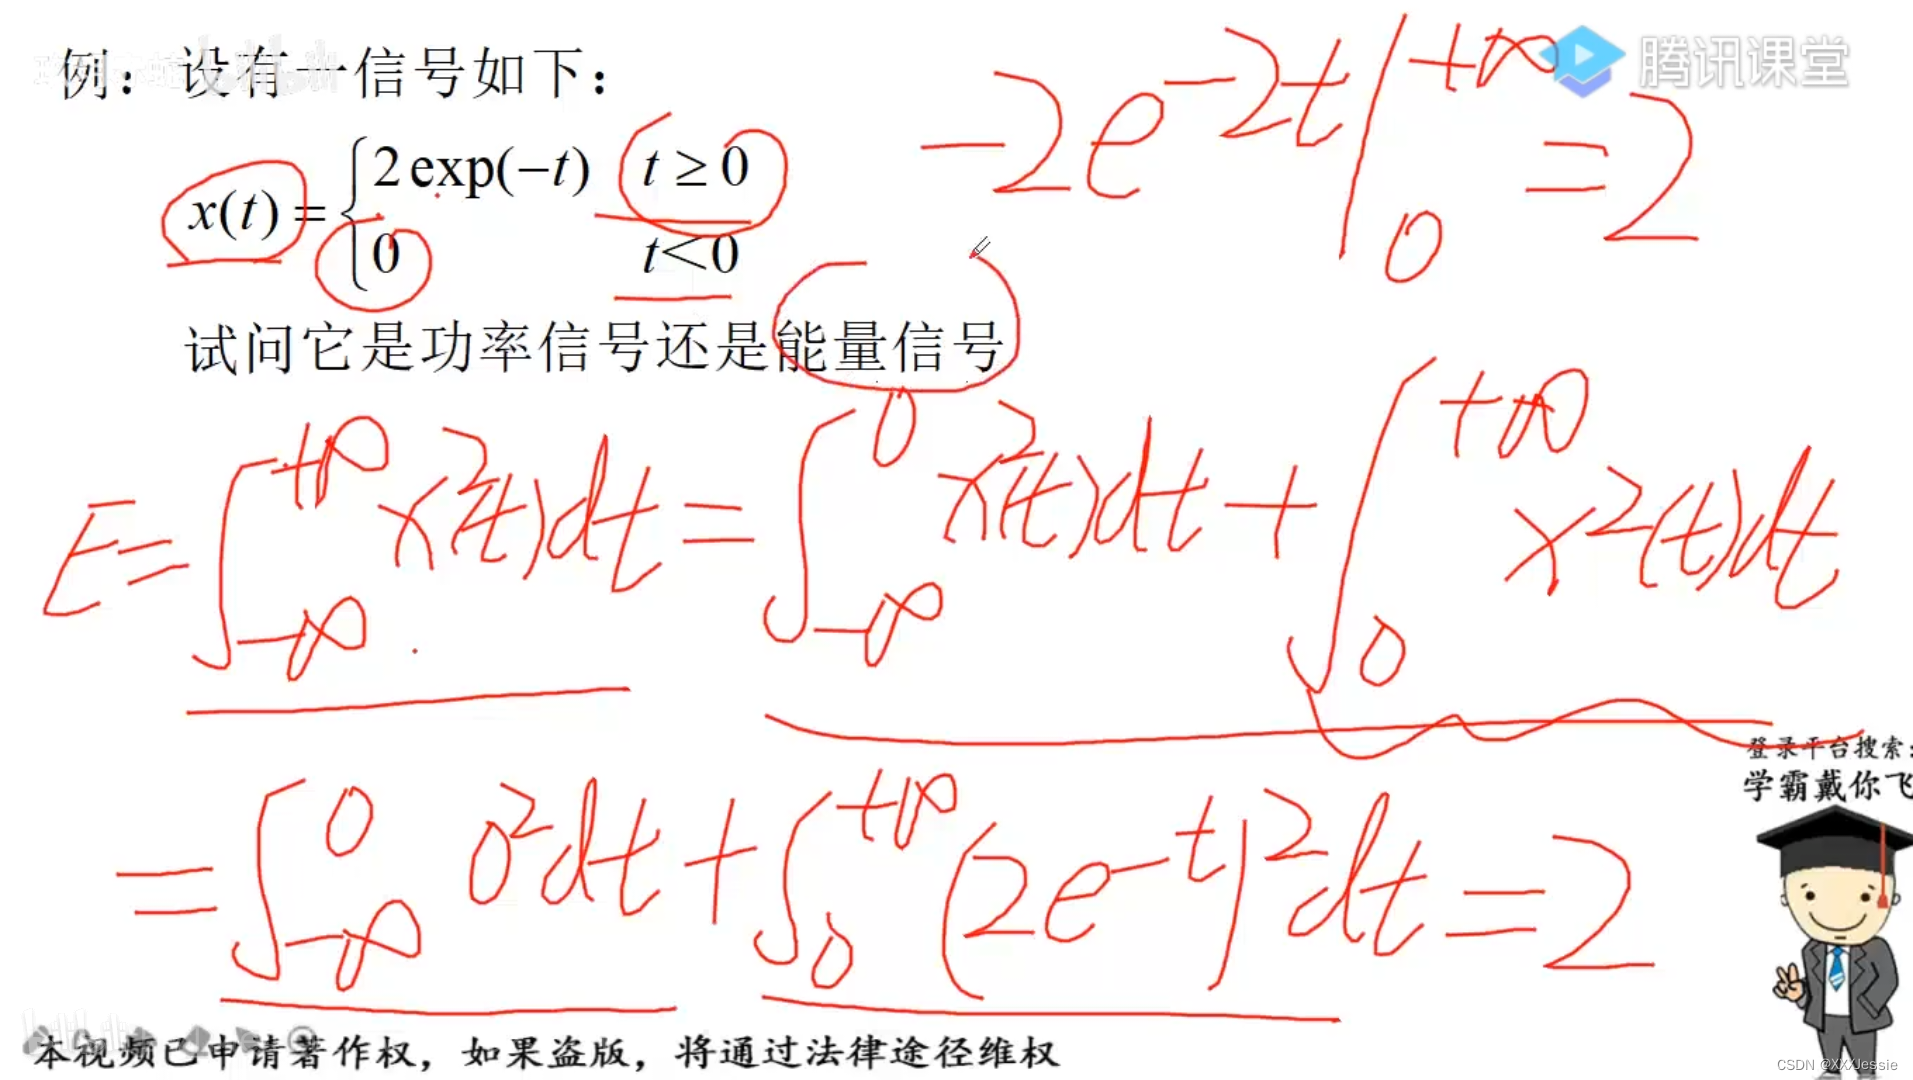 例：设有一信号如下：
腾讯课堂
-2e^{-2t}|_0^{+∞} = 2
x(t) = { 2exp(-t)  t ≥ 0
0  t<0
试问它是功率信号还是能量信号
E = ∫_{-∞}^{+∞} x²(t)dt = ∫_{-∞}^{0} x²(t)dt + ∫_{0}^{+∞} x²(t)dt
= ∫_{-∞}^{0} 0²dt + ∫_{0}^{+∞} (2e^{-t})²dt = 2
登录平台搜索：
学霸戴你飞
本视频已申请著作权，如果盗版，将通过法律途径维权
CSDN @XXXJessie